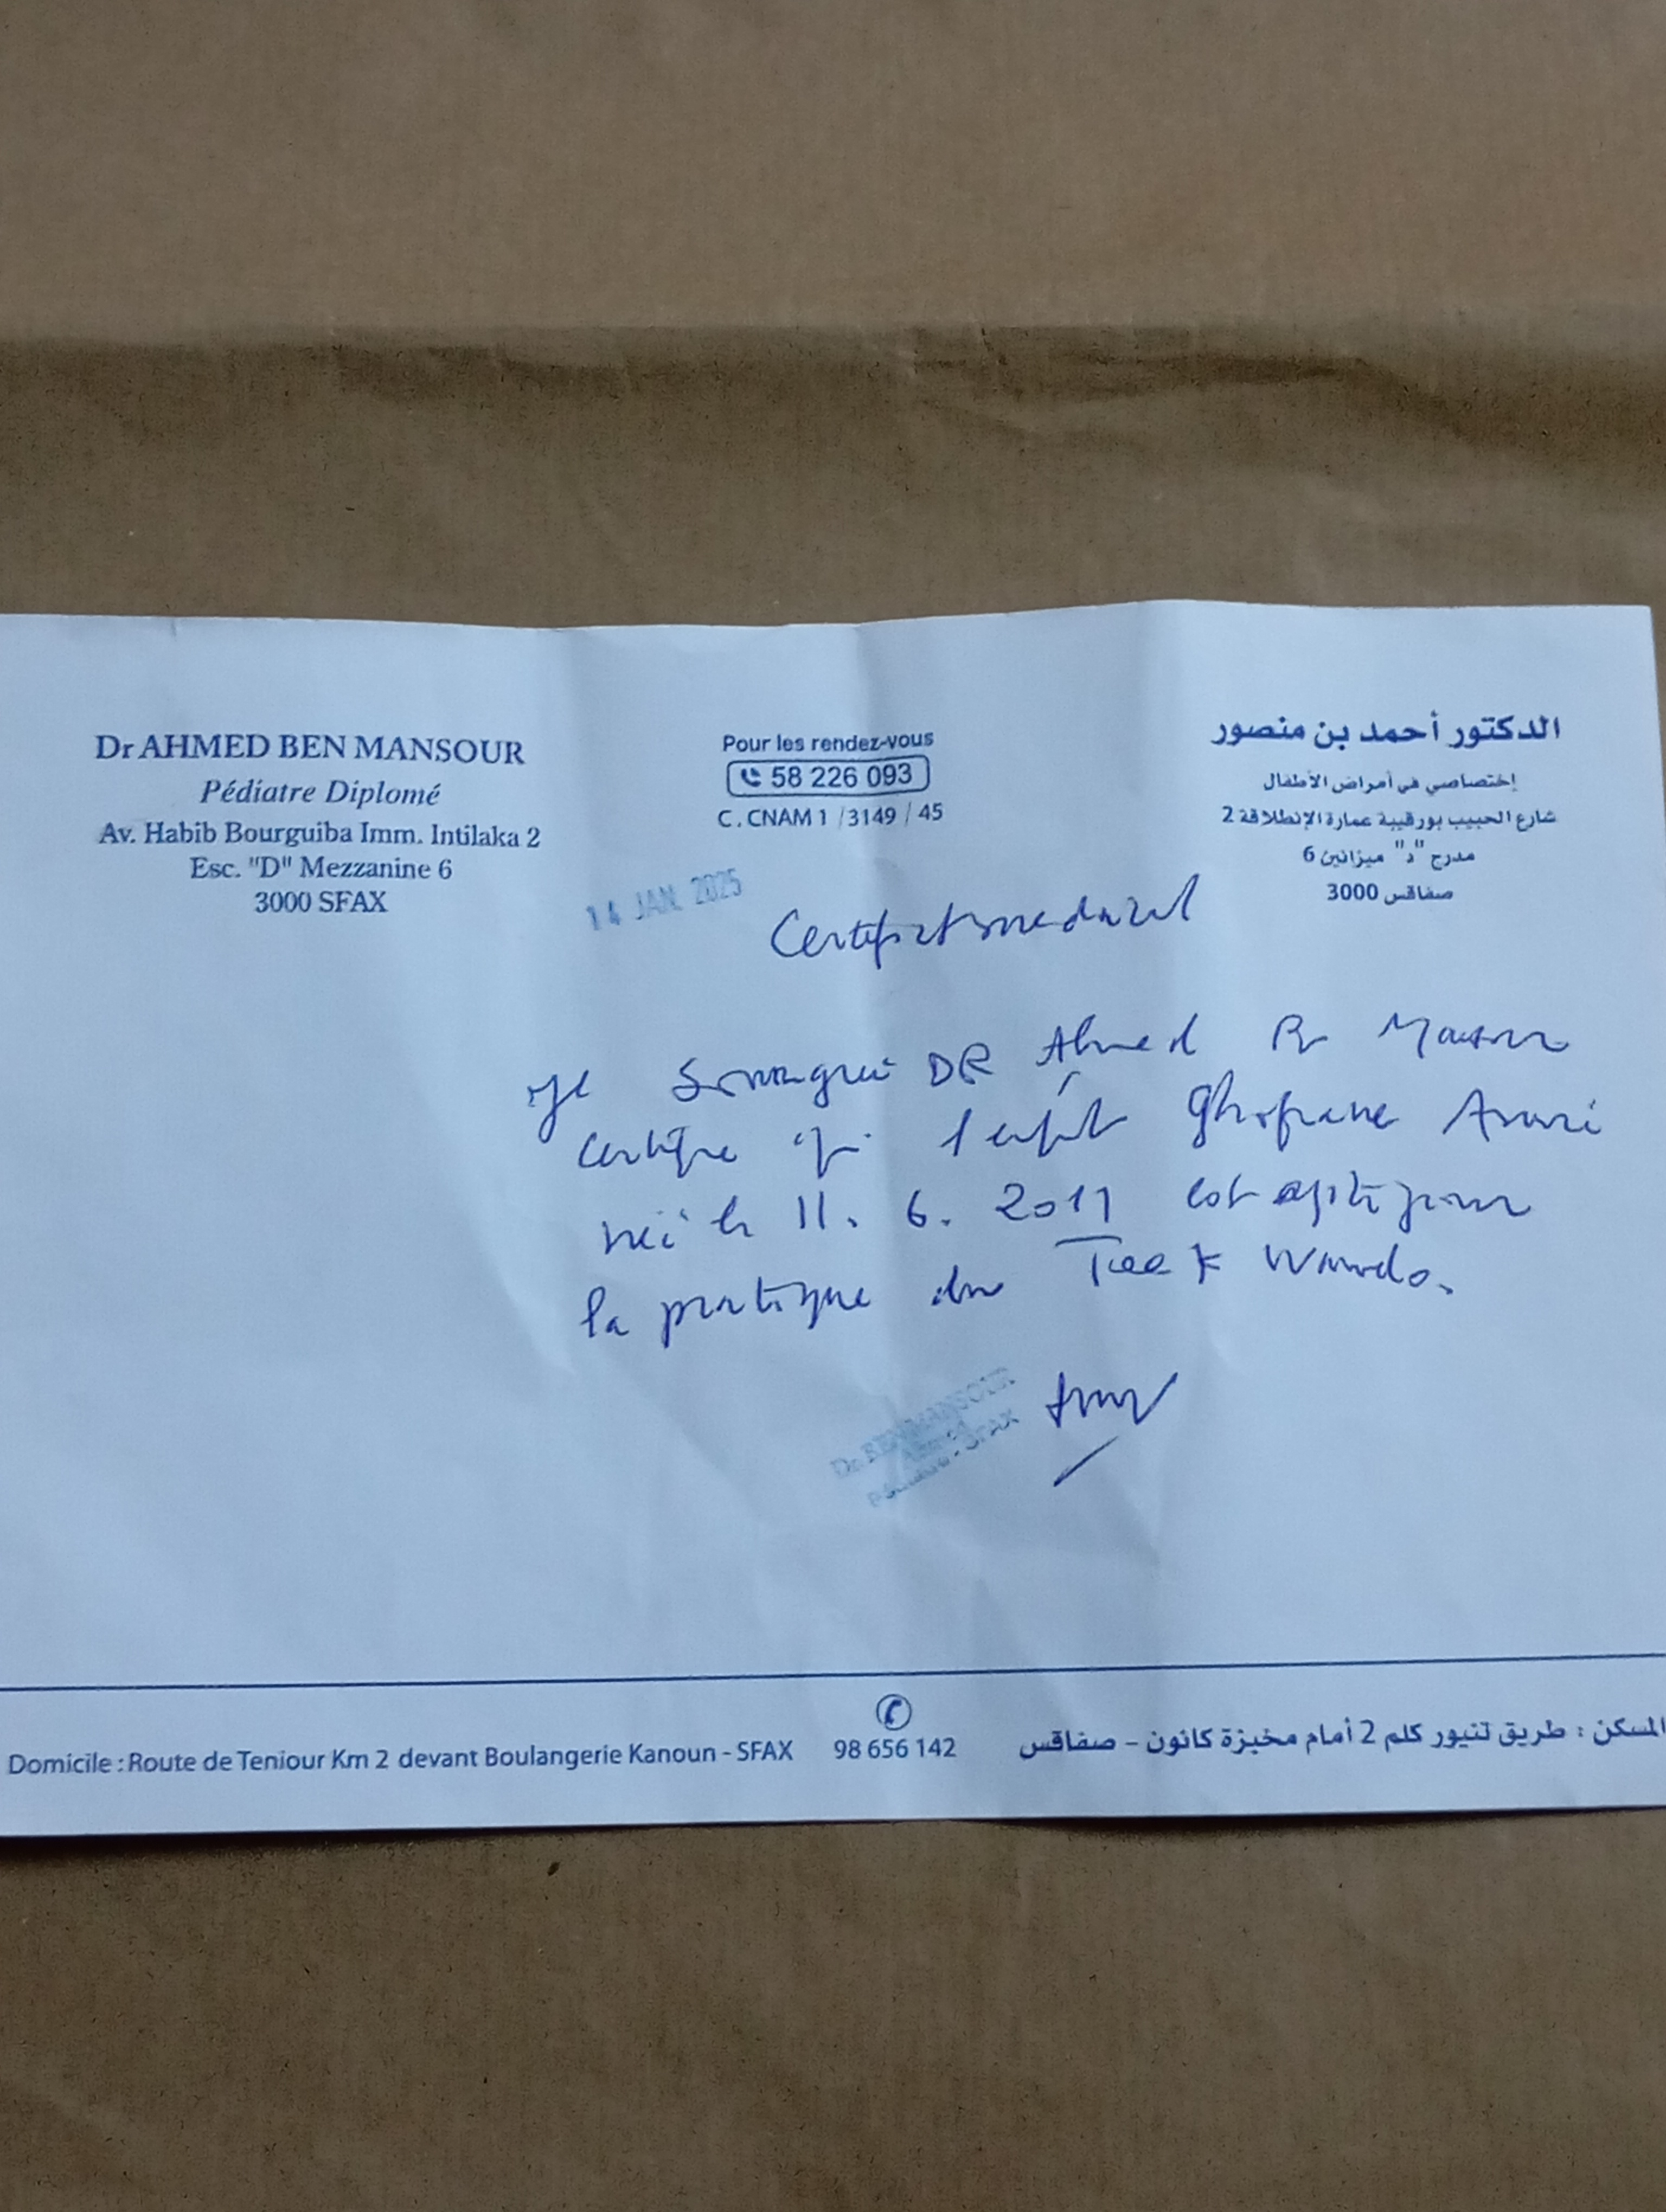 Dr AHMED BEN MANSOUR
Pédiatre Diplomé
Av. Habib Bourguiba Imm. Intilaka 2
Esc. "D" Mezzanine 6
3000 SFAX
Pour les rendez-vous
58 226 093
C. CNAM 1 / 3149 / 45
الدكتور أحمد بن منصور
إختصاصي في أمراض الأطفال
شارع الحبيب بورقيبة عمارة الإنطلاقة 2
مدرج "د" ميزانين 6
3000 صفاقس
14 JAN. 2025
Certificat medical
Je soussigné DR Ahmed Mansour
certifie que l'enfant Ghofrane
né le 11. 6. 2011 est apte pour
la pratique du Taek Wando.
Dr. BEN MANSOUR
Ahmed
Pédiatre - SFAX
Domicile : Route de Teniour Km 2 devant Boulangerie Kanoun - SFAX
98 656 142
المسكن : طريق تنيور كلم 2 أمام مخبزة كانون - صفاقس